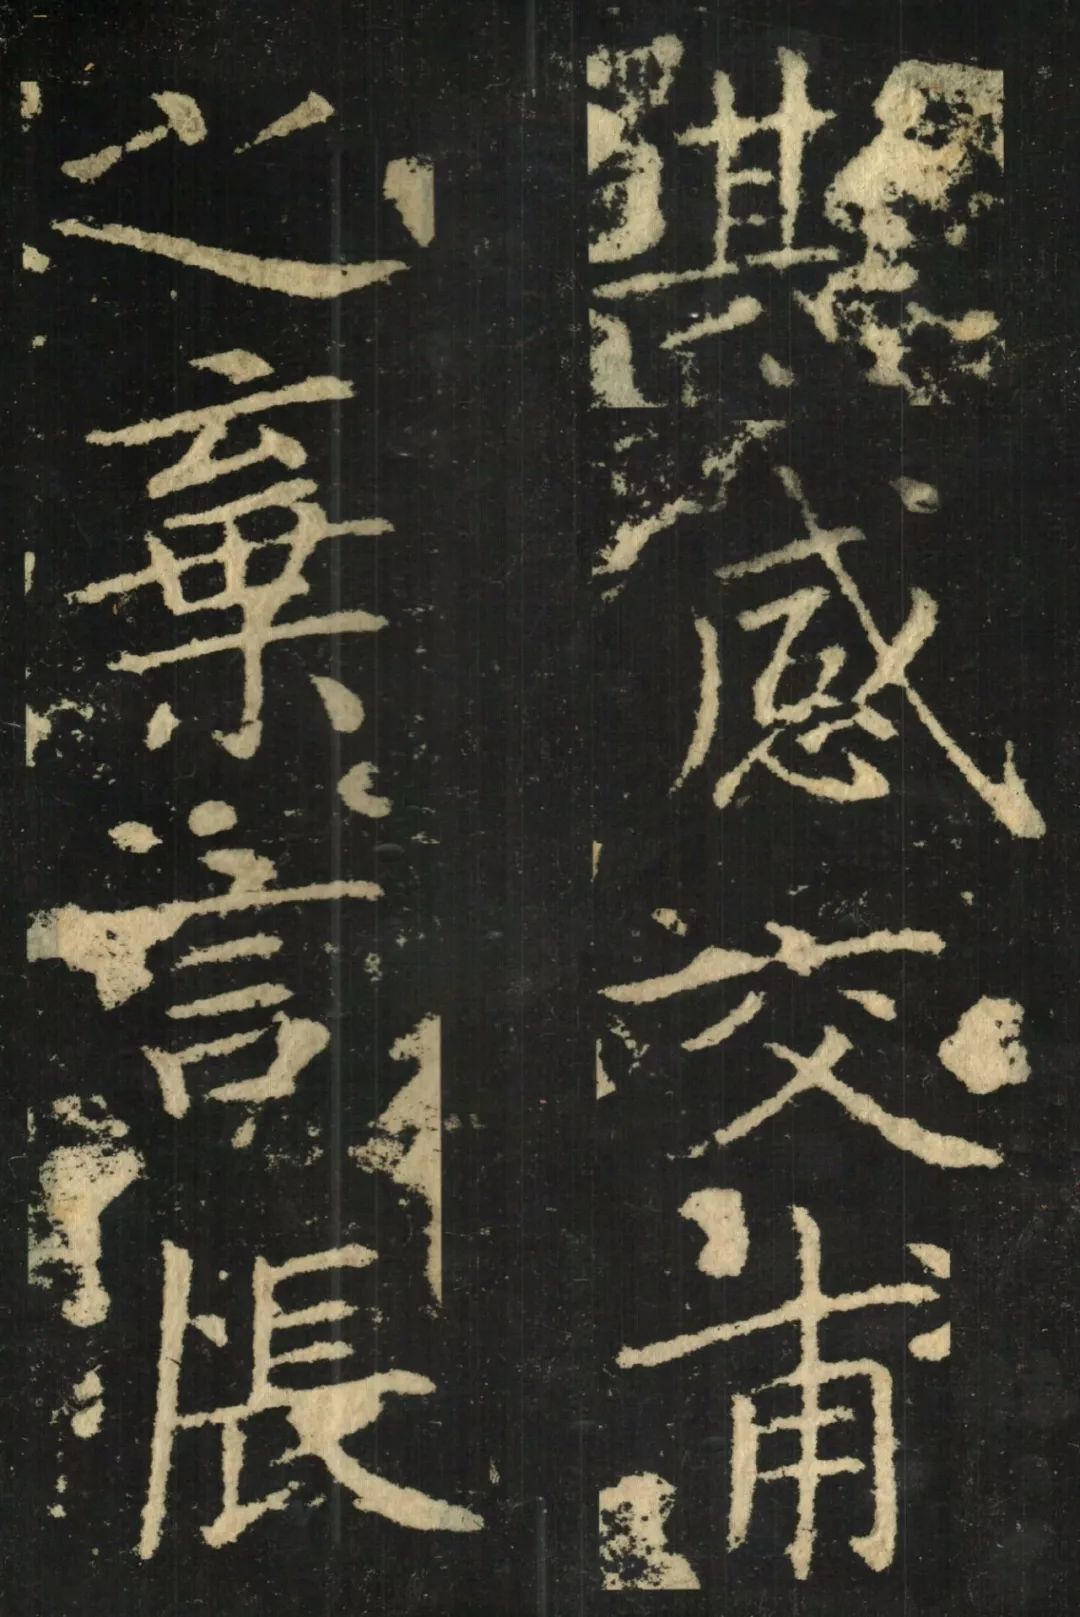 其感交甫
之棄言悵